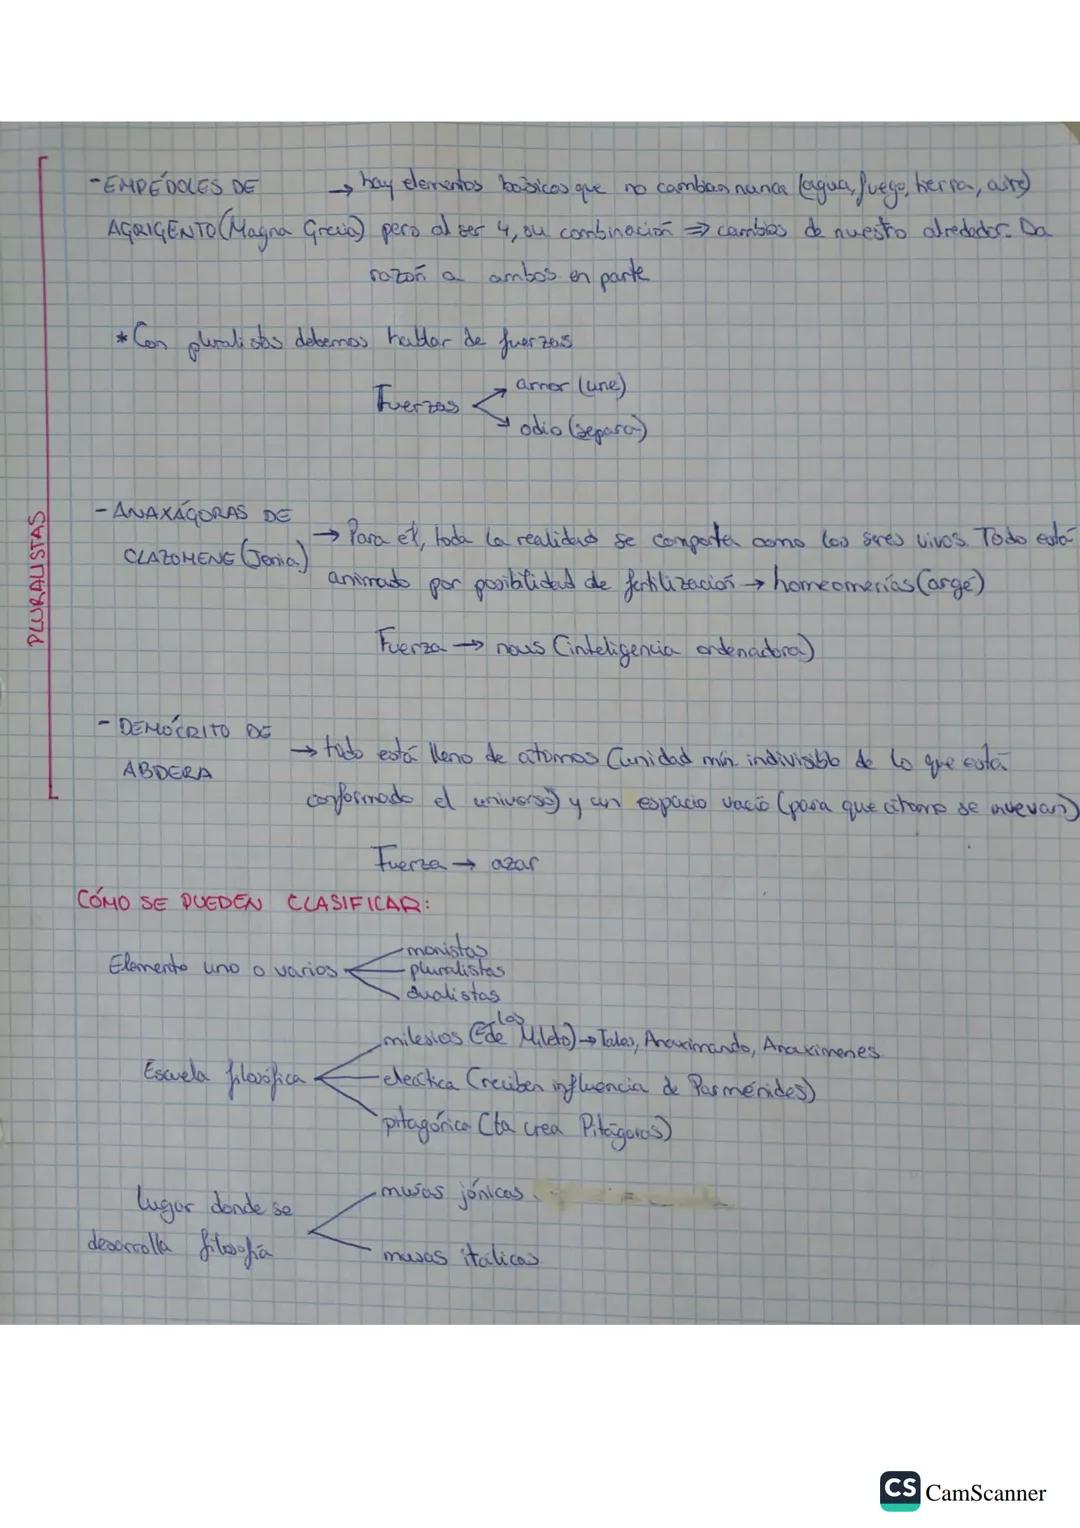 PLURALISTAS
- EMPÉDOLES DE → hay elementos básicos que no cambian nunca (agua, fuego, tierra, aire)
AGRIGENTO (Magna Grecia) pero al ser 4, su combinación ⇒ cambios de nuestro alrededor. Da
razón a ambos en parte
* Con pluralistas debemos hablar de fuerzas
amor (une)
Fuerzas
odio (separa)
- ANAXÁGORAS DE → Para él, toda la realidad se comporta como los seres vivos. Todo está
CLAZOMENE (Jonia) animado por posibilidad de fertilización → homeomerías (argé)
Fuerza → nous (inteligencia ordenadora)
- DEMÓCRITO DE → todo está lleno de atomos (unidad mín. indivisible de lo que está
ABDERA conformado el universo) y un espacio vacío (para que átomo se muevan)
Fuerza → azar
CÓMO SE PUEDEN CLASIFICAR:
monistas
Elemento uno o varios pluralistas
dualistas
milesios (de los Mileto) → Tales, Anaximando, Anaximenes
Escuela filosófica eleática (reciben influencia de Parménides)
pitagórica (la crea Pitágoras)
musas jónicas
lugar donde se
desarrolla filosofía musas itálicas
CS CamScanner